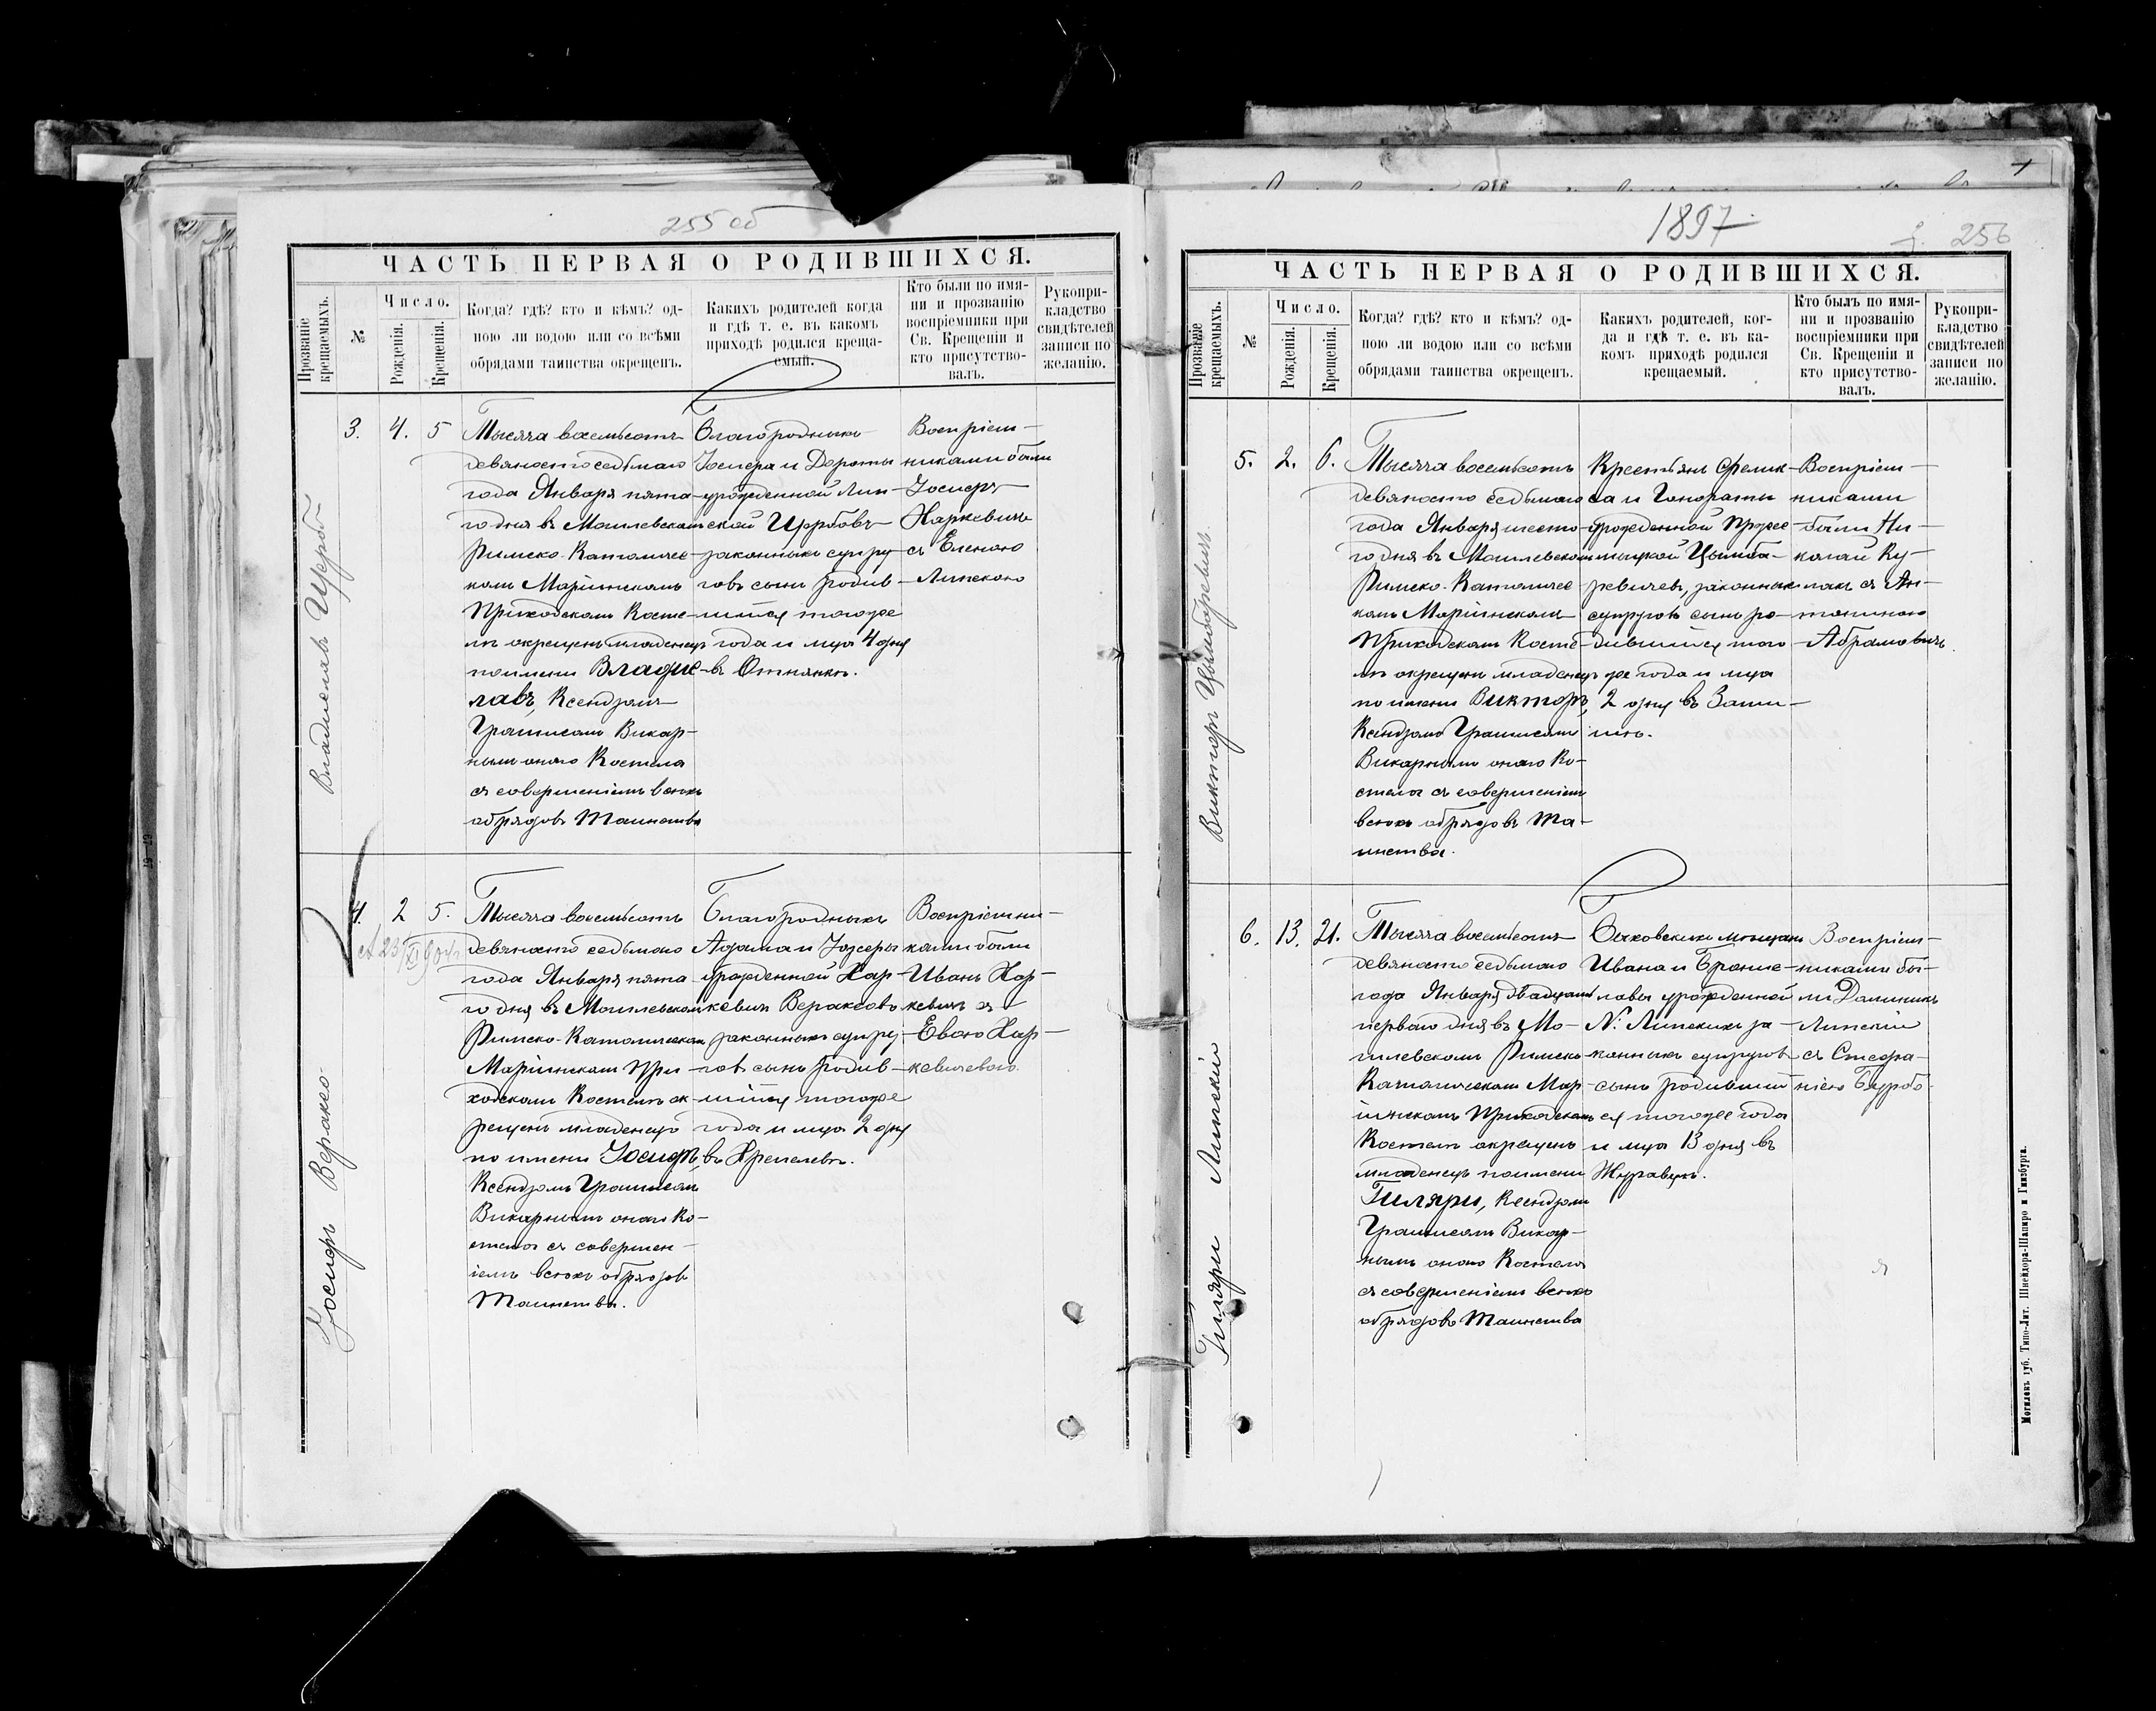 255 об
ЧАСТЬ ПЕРВАЯ О РОДИВШИХСЯ.
Прозваніе крещаемыхъ.
№
Число.
Рожденія.
Крещенія.
Когда? гдѣ? кто и кѣмъ? од-
ною ли водою или со всѣми
обрядами таинства окрещенъ.
Какихъ родителей когда
и гдѣ т. е. въ какомъ
приходѣ родился креща-
емый.
Кто были по имя-
ни и прозванію
воспріемники при
Св. Крещеніи и
кто присутство-
валъ.
Рукопри-
кладство
свидѣтелей
записи по
желанію.
Владиславъ
3.
4.
5
Тысяча восемьсотъ
девяносто седьмаго
года Января пята-
го дня въ Могилевскомъ
Римско-Католичес-
комъ Маріинскомъ
Приходскомъ Косте-
лѣ окрещенъ младенецъ
по имени Владис-
лавъ, Ксендзомъ
Викар-
нымъ онаго Костела
съ совершеніемъ всѣхъ
обрядовъ Таинства
Благородныхъ
Іосифа и Дороты
урожденной Лип-
ской
законныхъ супру-
говъ сынъ родив-
шійся тогоже
года и мца 4 дня
въ
Воспріем-
никами были
Іосифъ
Харкевичъ
съ Еленою
Липскою
Іосифъ Вераксо
4.
2
5.
Тысяча восемьсотъ
девяносто седьмаго
года Января пята-
го дня въ Могилевском
Римско-Католическом
Маріинскомъ При-
ходскомъ Костелѣ ок-
рещенъ младенецъ
по имени Іосифъ,
Ксендзомъ
Викарнымъ онаго Ко-
стела съ совершен-
іемъ всѣхъ обрядовъ
Таинства.
Благородныхъ
Адама и Іозефы
урожденной Хар-
кевичъ Вераксовъ
законныхъ супру-
говъ сынъ родив-
шійся тогоже
года и мца 2 дня
въ
Воспріемни-
ками были
Иванъ Хар-
кевичъ съ
Евою Хар-
кевичевою.
1897
256
ЧАСТЬ ПЕРВАЯ О РОДИВШИХСЯ.
Прозваніе крещаемыхъ.
№
Число.
Рожденія.
Крещенія.
Когда? гдѣ? кто и кѣмъ? од-
ною ли водою или со всѣми
обрядами таинства окрещенъ.
Какихъ родителей, ког-
да и гдѣ т. е. въ ка-
комъ приходѣ родился
крещаемый.
Кто былъ по имя-
ни и прозванію
воспріемники при
Св. Крещеніи и
кто присутство-
валъ.
Рукопри-
кладство
свидѣтелей
записи по
желанію.
Викторъ Цымбаревичъ
5.
2.
6.
Тысяча восемьсотъ
девяносто седьмаго
года Января шесто-
го дня въ Могилевском
Римско-Католичес-
комъ Маріинскомъ
Приходскомъ Косте-
лѣ окрещенъ младенецъ
по имени Викторъ,
Ксендзомъ
Викарнымъ онаго Ко-
стела съ совершеніемъ
всѣхъ обрядовъ Та-
инства.
Крестьянъ Фелик-
са и Гонораты
урожденной
Цымба-
ревичевъ, законных
супруговъ сынъ ро-
дившійся того
же года и мца
2 дня въ
Воспріем-
никами
были Ни-
колай Ку-
лакъ съ Ан-
тониною
Абрамовичъ
Гиляри Липскій
6.
13.
21.
Тысяча восемьсотъ
девяносто седьмаго
года Января двадцать
перваго дня въ Мо-
гилевскомъ Римско
Католическомъ Мар-
іинскомъ Приходском
Костелѣ окрещенъ
младенецъ по имени
Гиляри, Ксендзомъ
Викар-
нымъ онаго Костела
съ совершеніемъ всѣхъ
обрядовъ Таинства
Быховскихъ мѣщанъ
Ивана и Бронис-
лавы урожденной
N. Липскихъ за-
конныхъ супруговъ
сынъ родившій-
ся тогоже года
и мца 13 дня въ
Воспріем-
никами бы-
ли Доминикъ
Липскій
съ Стефа-
ніею
Могилевъ губ. Типо-Лит. Шнейдора-Шапиро и Гинзбурга.